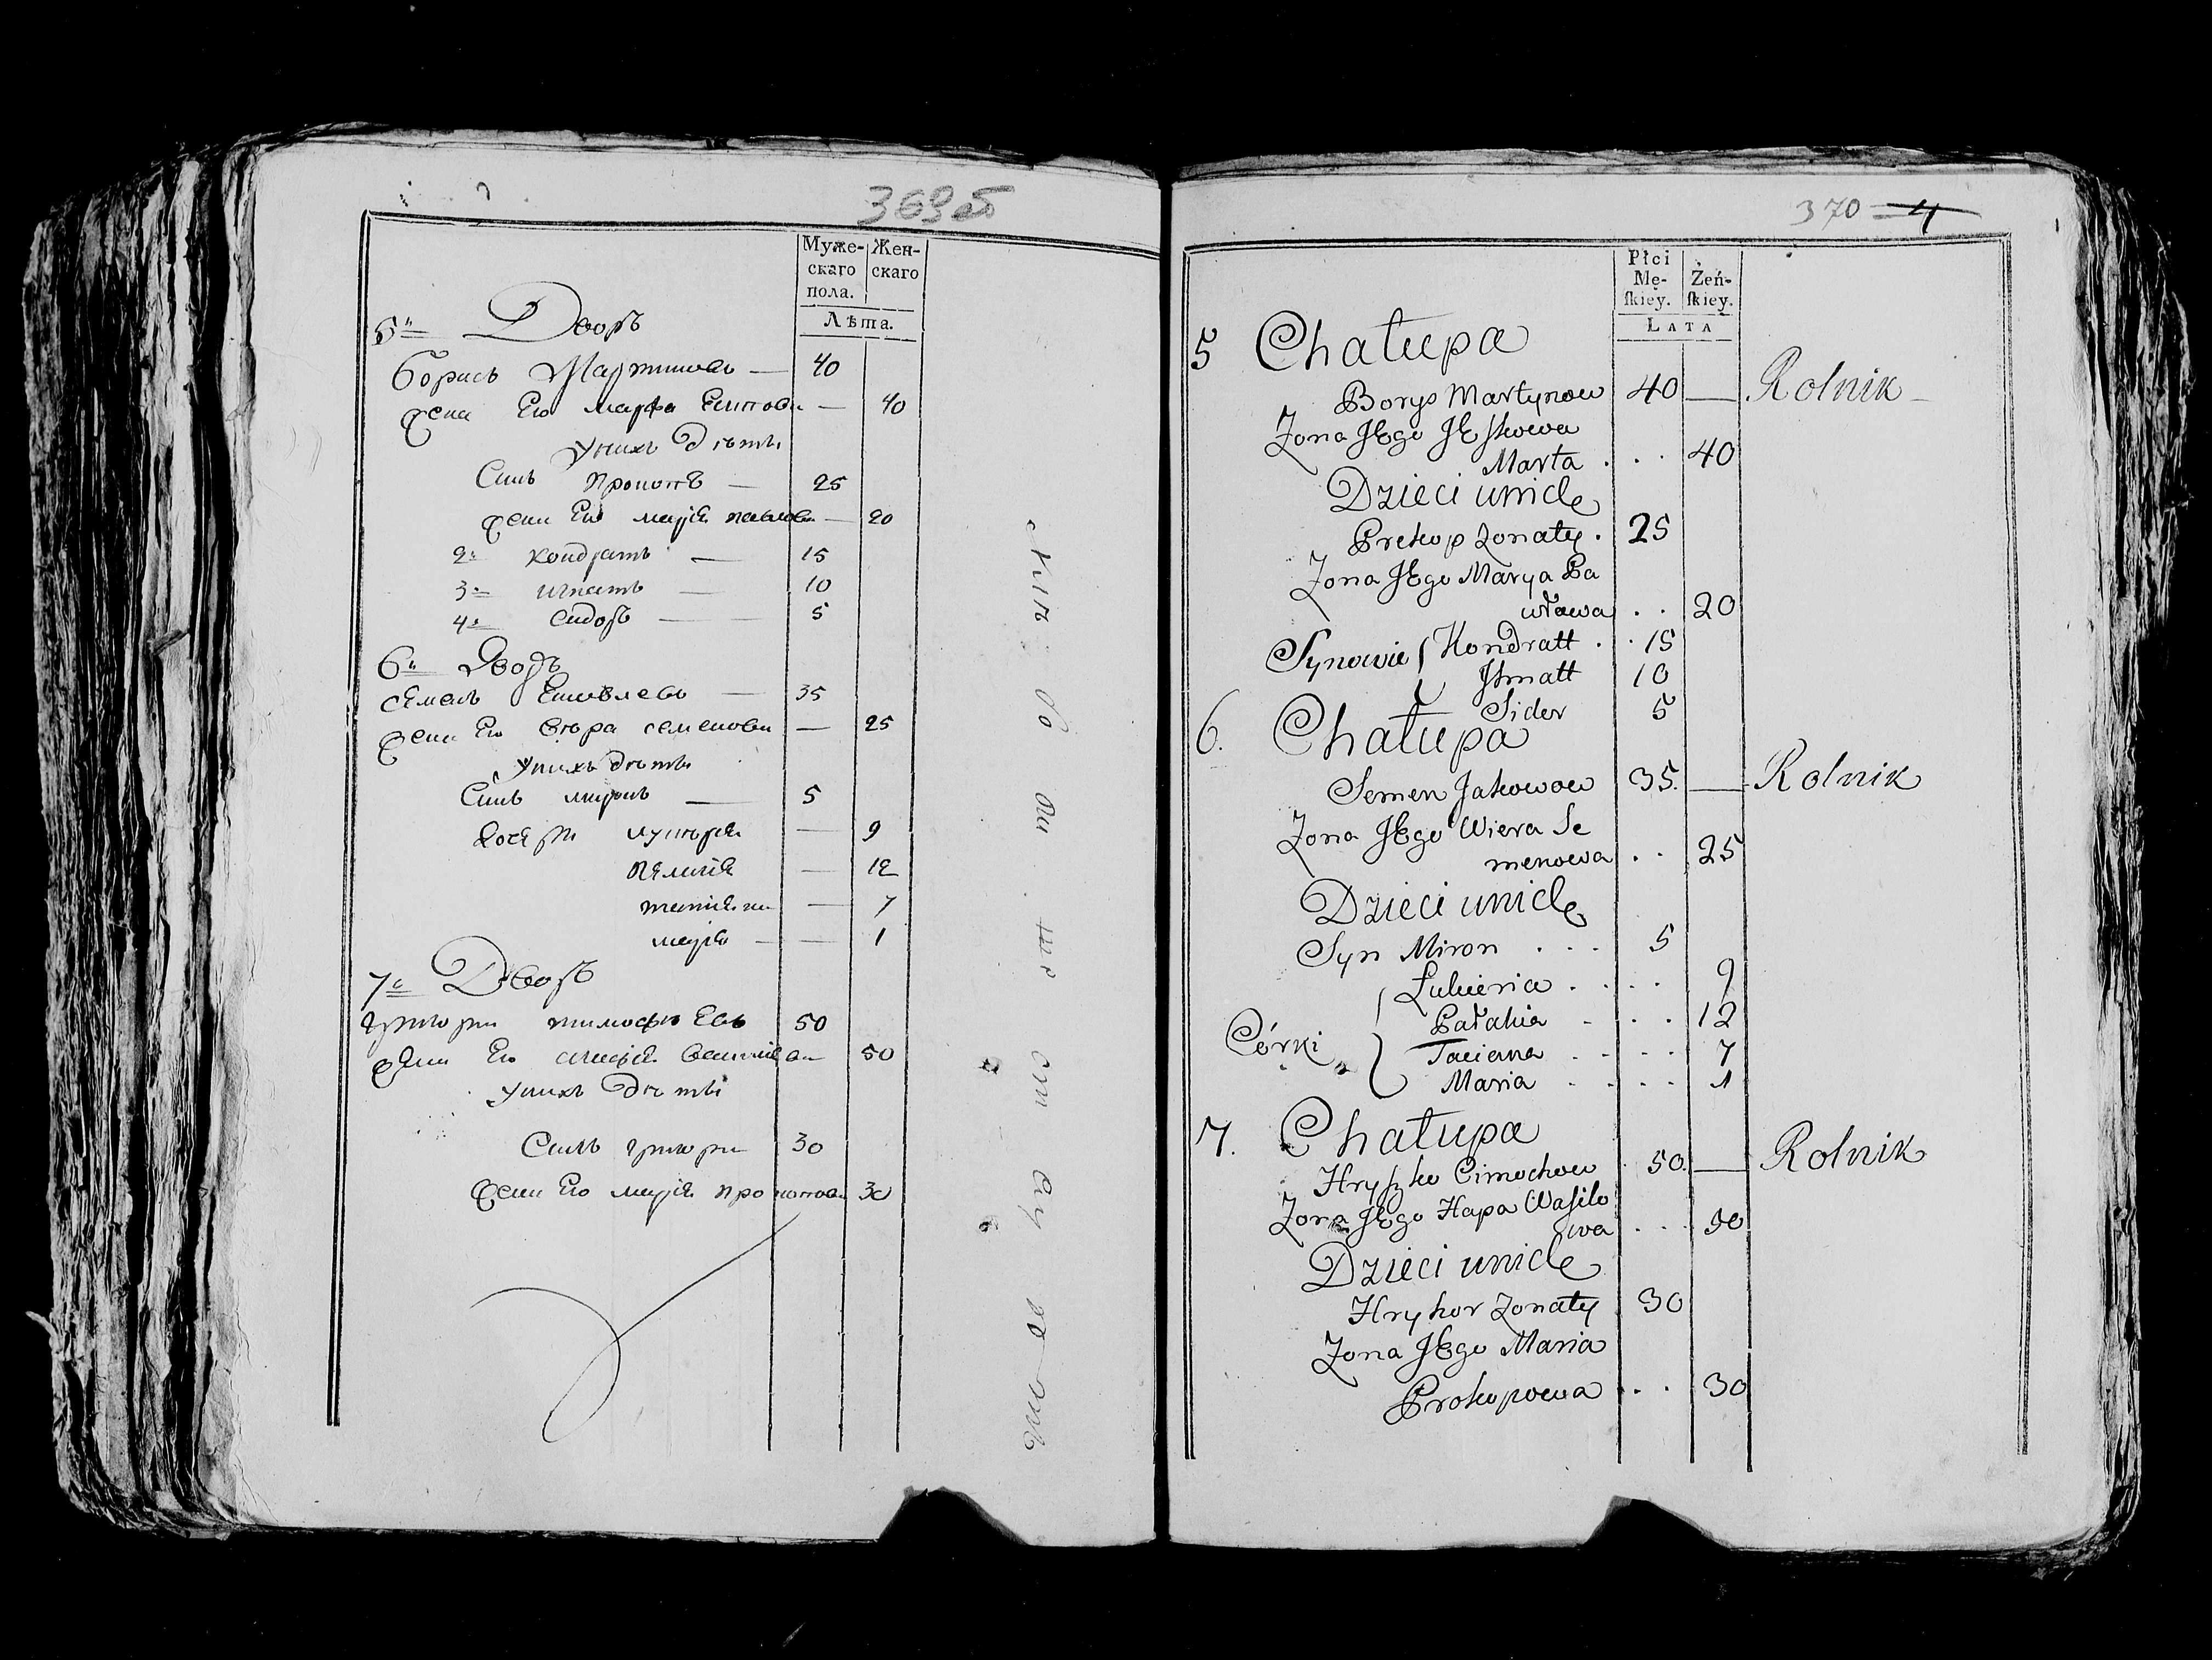 369 об
Муже- Жен-
скаго скаго
пола.
Лѣта.
5й Дворъ
Борисъ Мартиновъ — 40
Жена Ево марфа — 40
У нихъ дѣти
Синъ Прокопъ — 25
Жена Ево марія павлова — 20
2й Кондратъ — 15
3й игнатъ — 10
4й Сидоръ — 5
6й Дворъ
семенъ Яковлевъ — 35
Жена Ево вѣра семенова — 25
У нихъ дѣти
Синъ миронъ — 5
дочери лукѣрія — 9
Пелагія — 12
татіяна — 7
марія — — 1
7й Дворъ
григори тимофѣевъ 50
Жена Ево агафія василіева 50
У нихъ дѣти
Синъ григори 30
Жена Ево марія прокопова 30
370 4
Płci
Mę- Żeń-
ſkiey. ſkiey.
LATA
5 Chałupa
Borys Martynow 40 — Rolnik
Zona JEgo JEſkowa
Marta . . . 40
Dzieci unich
Prokop Zonaty . 25
Zona JEgo Marya Pa
wława . . 20
Synowie Kondratt . . 15
Jhnatt 10
Sidor 5
6. Chałupa
Semen Jakowow 35. — Rolnik
Zona JEgo Wiera Se
menowa . . 25
Dzieci unich
Syn Miron . . . 5
Łukieria . . . . 9
Pałahia . . . 12
Córki Taciana . . . . 7
Maria . . . . 1
7. Chałupa
Hryſzko Cimochow 50. — Rolnik
Zona JEgo Hapa Waſilo
wa . . . 50
Dzieci unich
Hryhor Zonaty 30
Zona JEgo Maria
Prokopowa . . 30